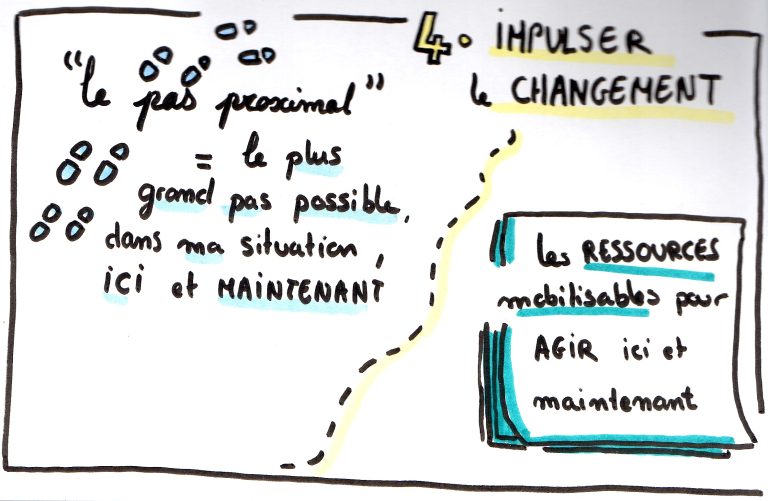 4. IMPULSER
le CHANGEMENT
"le pas proximal"
= le plus
grand pas possible,
dans ma situation,
ici et MAINTENANT
les RESSOURCES
mobilisables pour
AGIR ici et
maintenant